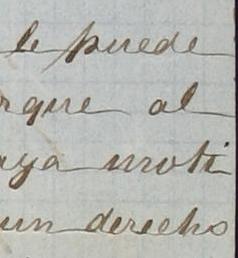 le puede
rque al
aya moti
un derecho